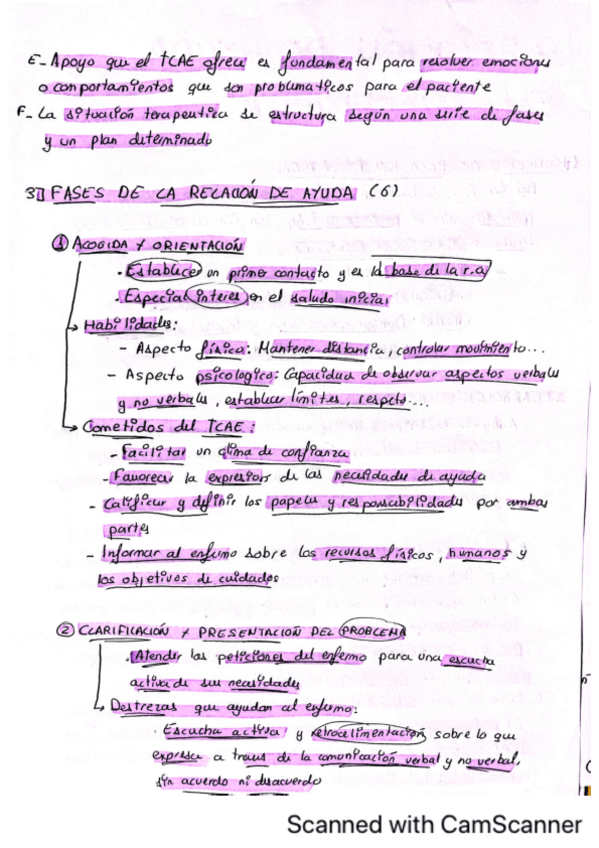 E- Apoyo que el TCAE ofrece es fundamental para resolver emociones
o comportamientos que son problematicos para el paciente
F- La situación terapeutica se estructura según una serie de fases
y un plan determinado
3] FASES DE LA RELACIÓN DE AYUDA (6)
① ACOGIDA Y ORIENTACIÓN
· Establecer un primer contacto y es la base de la r.a
· Especial interes en el saludo inicial
Habilidades:
- Aspecto físico: Mantener distancia, controlar movimiento...
- Aspecto psicologico: Capacidad de observar aspectos verbales
y no verbales, establecer límites, respeto....
Cometidos del TCAE:
- Facilitar un clima de confianza
- Favorecer la expresion de las necesidades de ayuda
- Calificar y definir los papeles y responsabilidades por ambas
partes
- Informar al enfermo sobre los recursos físicos, humanos y
los objetivos de cuidados
② CLARIFICACIÓN Y PRESENTACION DEL PROBLEMA
· Atender las peticiones del enfermo para una escucha
activa de sus necesidades
Destrezas que ayudan al enfermo:
· Escucha activa y retroalimentacion, sobre lo que
expresa a traves de la comunicación verbal y no verbal,
sin acuerdo ni desacuerdo
Scanned with CamScanner